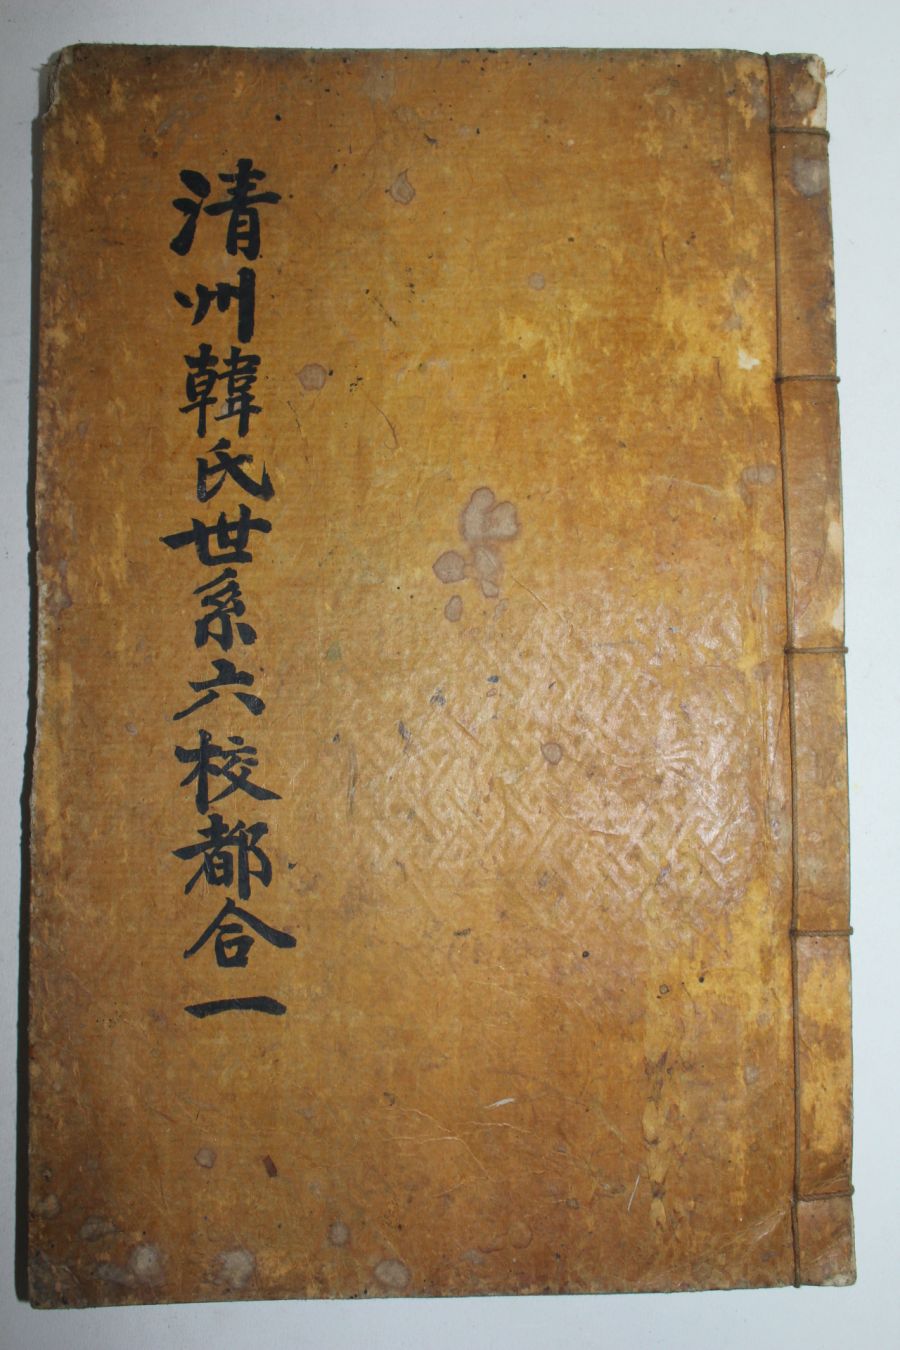 清州韓氏世系六校都合一